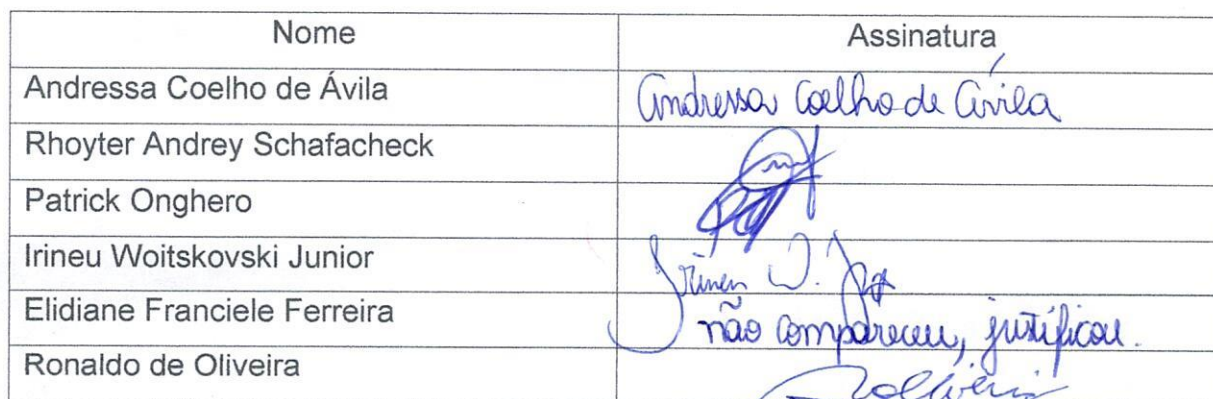 Nome Assinatura
Andressa Coelho de Ávila Andressa Coelho de Ávila
Rhoyter Andrey Schafacheck
Patrick Onghero
Irineu Woitskovski Junior Irineu W. Jr
Elidiane Franciele Ferreira não compareceu, justificou.
Ronaldo de Oliveira ROliveira